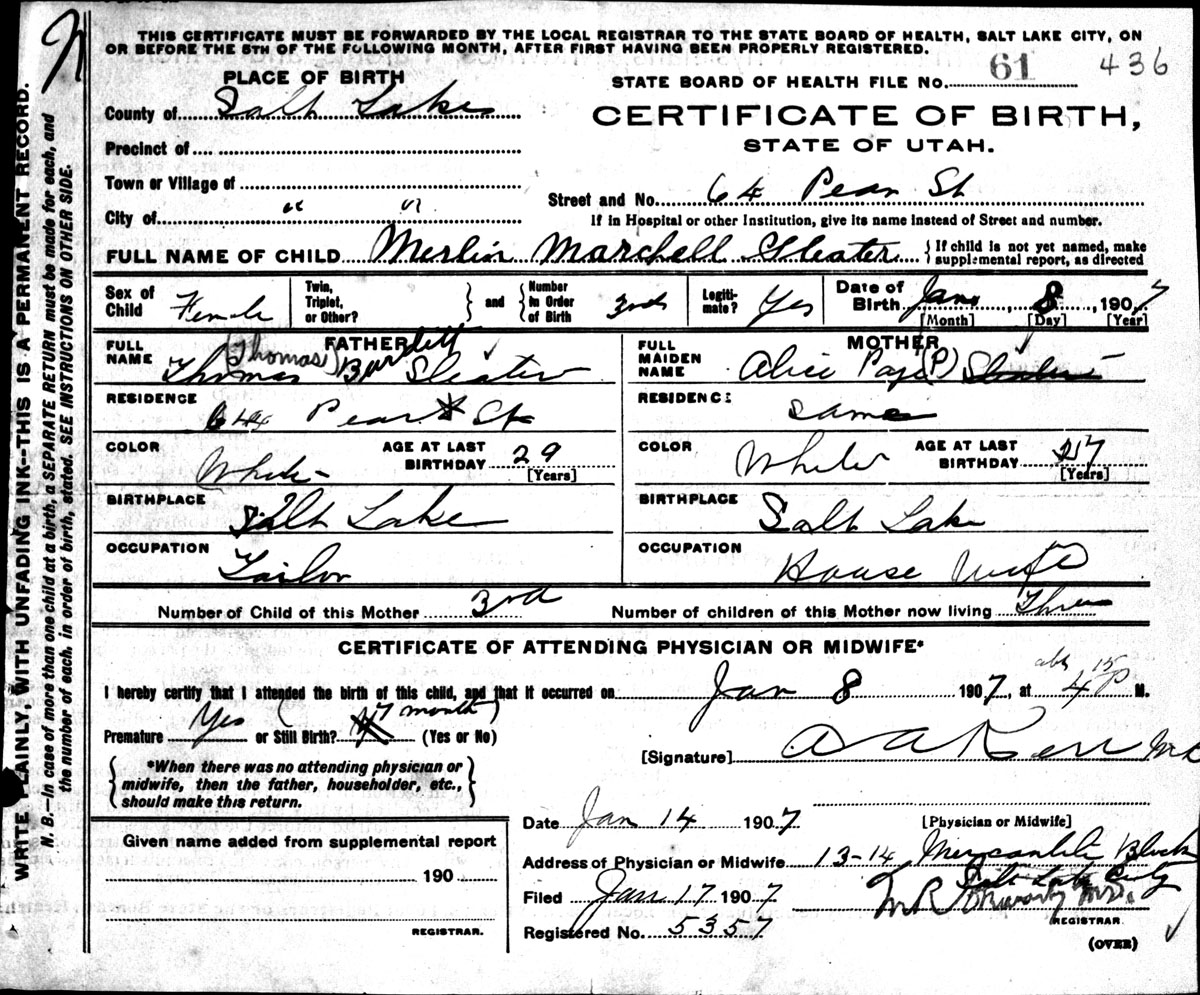 N
THIS CERTIFICATE MUST BE FORWARDED BY THE LOCAL REGISTRAR TO THE STATE BOARD OF HEALTH, SALT LAKE CITY, ON
OR BEFORE THE 5TH OF THE FOLLOWING MONTH, AFTER FIRST HAVING BEEN PROPERLY REGISTERED.
PLACE OF BIRTH
STATE BOARD OF HEALTH FILE No. 61 436
County of Salt Lake
CERTIFICATE OF BIRTH,
STATE OF UTAH.
Precinct of
Town or Village of
Street and No. 64 Pear St
City of " "
If in Hospital or other Institution, give its name instead of Street and number.
FULL NAME OF CHILD Merlin Marchell Sleater {If child is not yet named, make
supplemental report, as directed
Sex of Child Female
Twin, Triplet, or Other? } and { Number in Order of Birth 3rd
Legitimate? Yes
Date of Birth Jan 8, 1907
[Month] [Day] [Year]
FATHER
FULL NAME (Thomas) Thomas Burdett Sleater
MOTHER
FULL MAIDEN NAME Alice Page (P)
RESIDENCE 644 Pear St
RESIDENCE same
COLOR White
AGE AT LAST BIRTHDAY 29
[Years]
COLOR White
AGE AT LAST BIRTHDAY 27
[Years]
BIRTHPLACE Salt Lake
BIRTHPLACE Salt Lake
OCCUPATION Tailor
OCCUPATION House Wife
Number of Child of this Mother 3rd Number of children of this Mother now living Three
CERTIFICATE OF ATTENDING PHYSICIAN OR MIDWIFE*
I hereby certify that I attended the birth of this child, and that it occurred on Jan 8 1907, at abt 4 15 P M.
Premature Yes (7 month) or Still Birth? (Yes or No)
[Signature] A A Kerr MD
{*When there was no attending physician or
midwife, then the father, householder, etc.,
should make this return.}
Date Jan 14 1907
[Physician or Midwife]
Given name added from supplemental report
Address of Physician or Midwife 13-14 Mercantile Block
Salt Lake City
190
Filed Jan 17 1907
M.D.
REGISTRAR.
REGISTRAR.
Registered No. 5357
(OVER)
WRITE PLAINLY, WITH UNFADING INK--THIS IS A PERMANENT RECORD.
N. B.—In case of more than one child at a birth, a SEPARATE RETURN must be made for each, and
the number of each, in order of birth, stated. SEE INSTRUCTIONS ON OTHER SIDE.